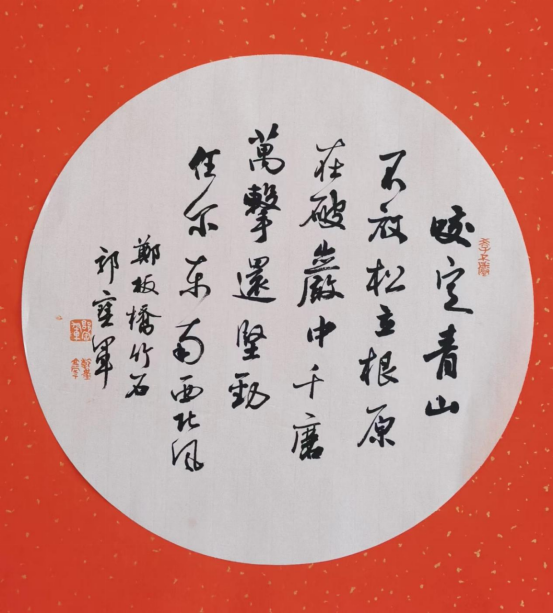 咬定青山
不放松立根原
在破巖中千磨
萬擊還堅勁
任尔东南西北风
鄭板橋竹石